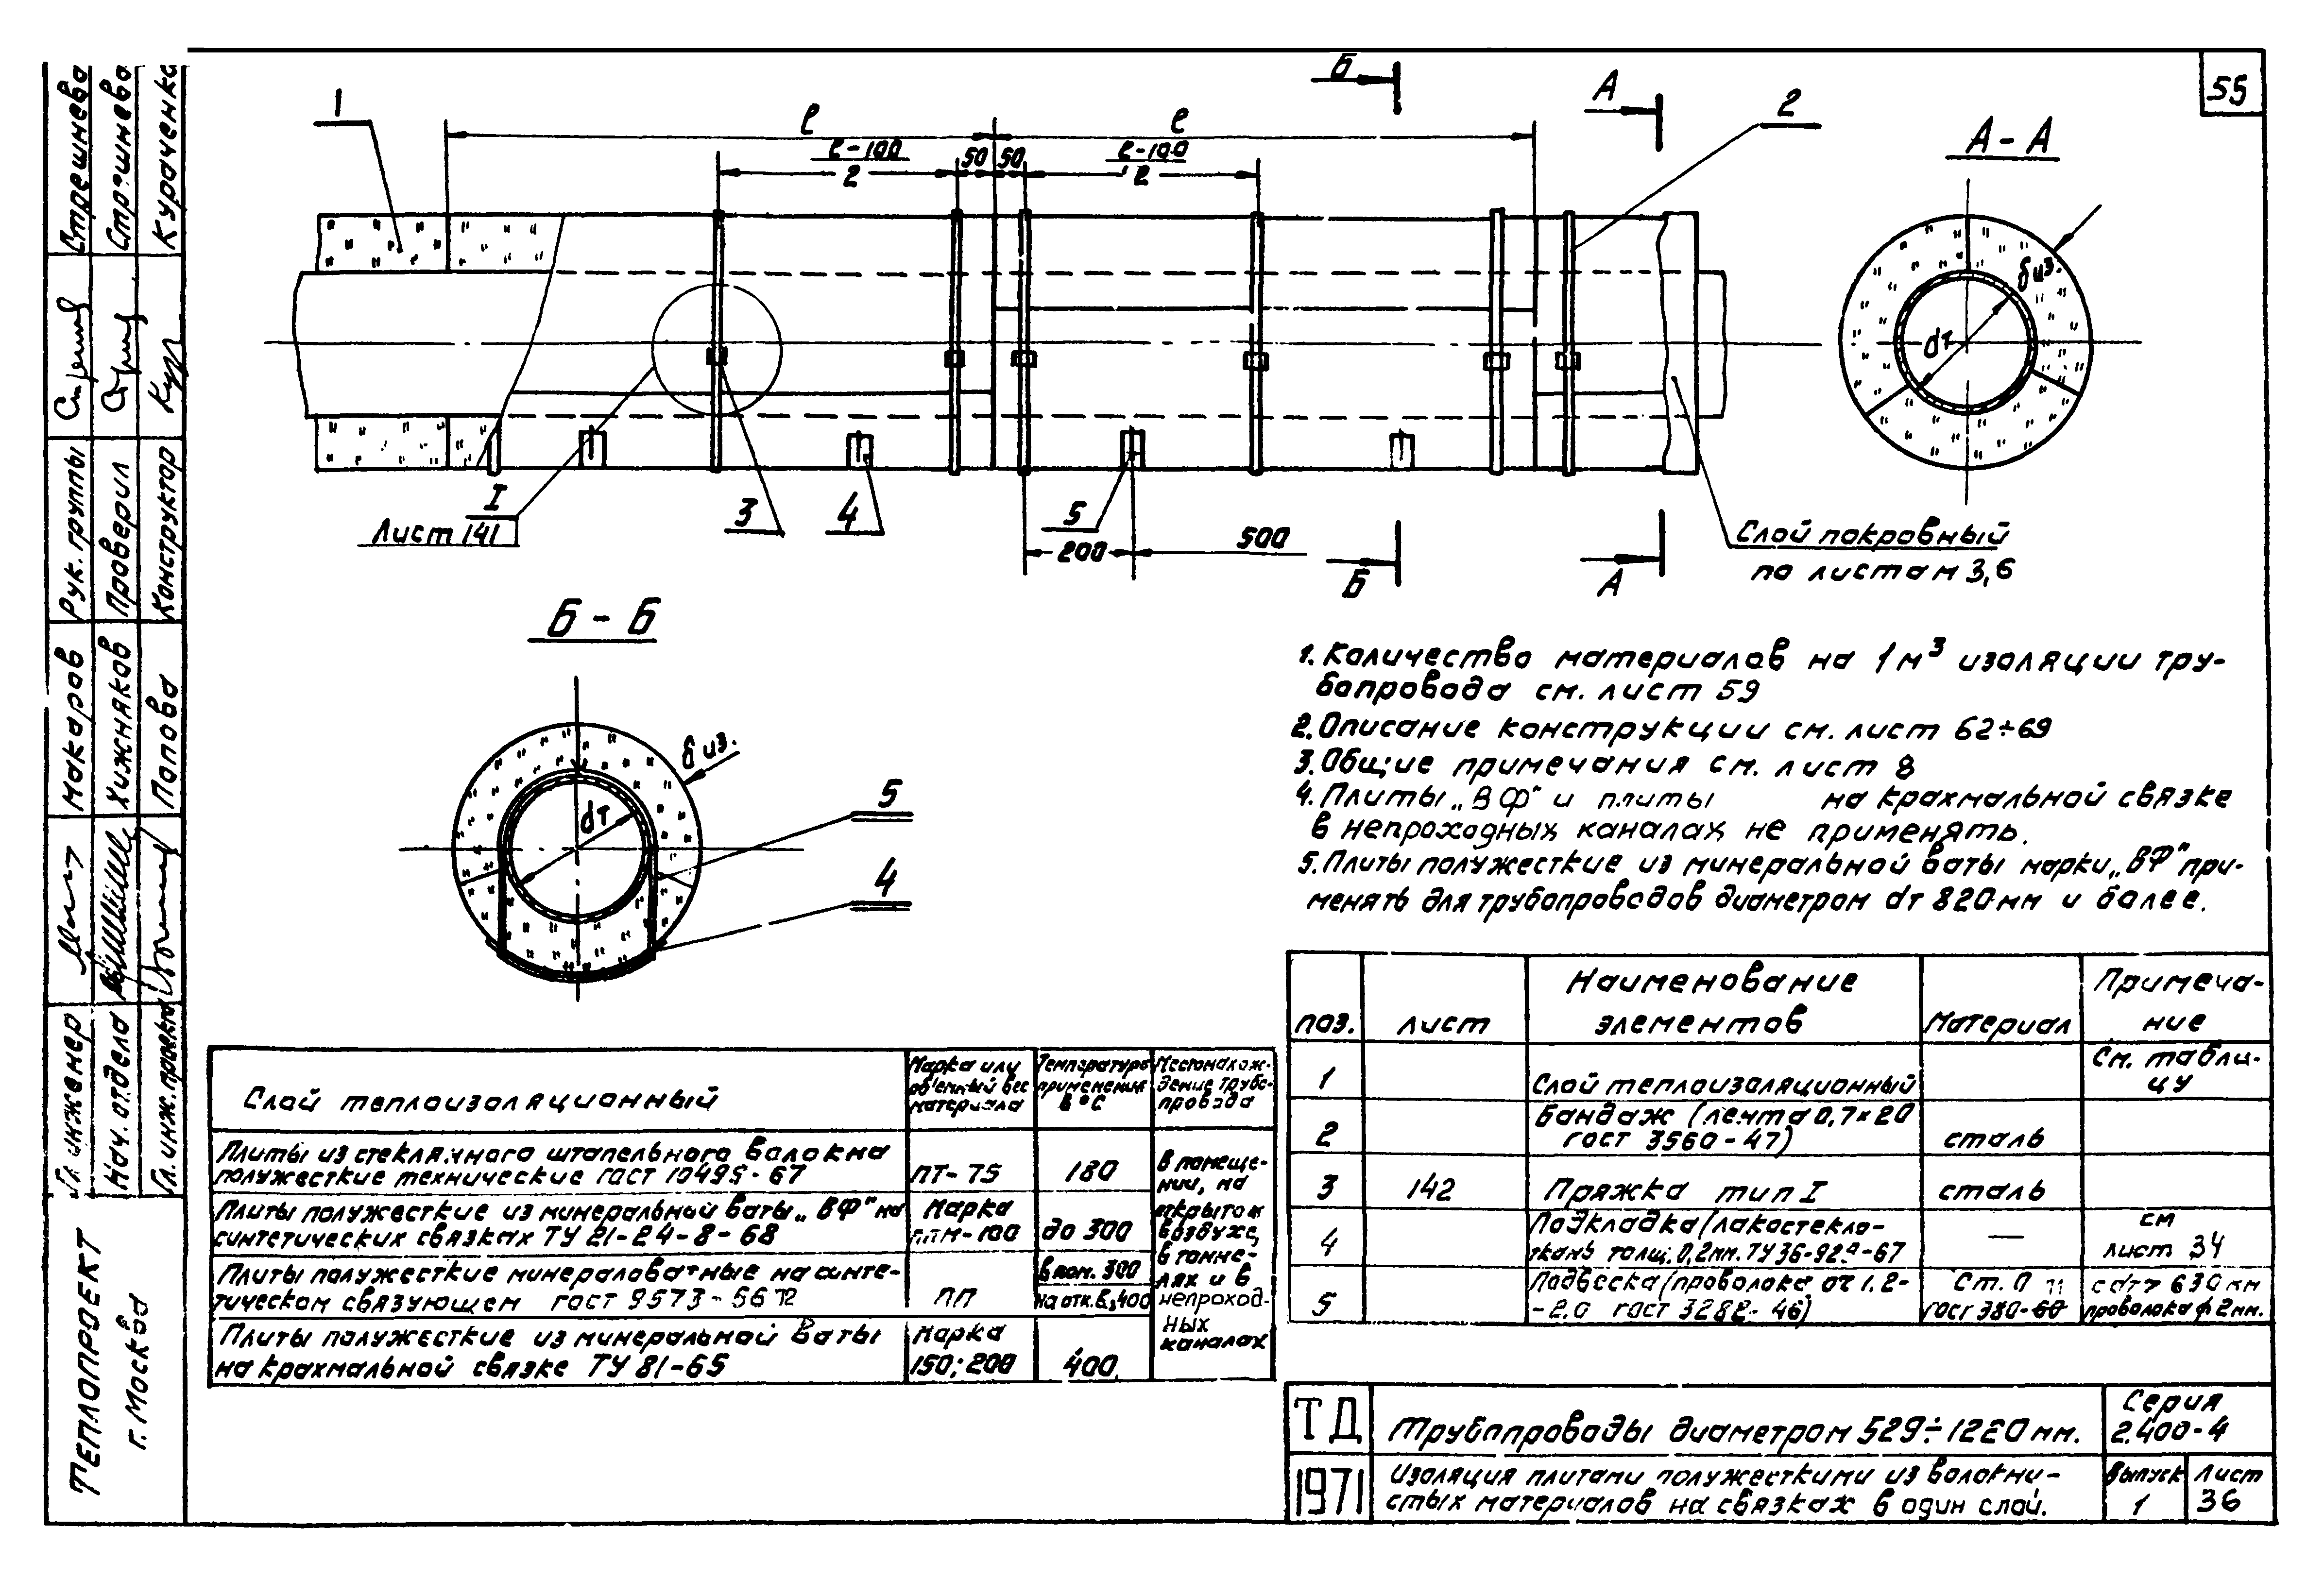 55
1
l
l
Б
А
2
l-100
2
50
50
l-100
2
А-А
δиз.
dт
I
Лист 141
3
4
5
200
500
Б
А
Слой покровный
по листам 3,6
Б-Б
δиз.
dт
5
4
1. Количество материалов на 1м³ изоляции тру-
бопровода см. лист 59
2. Описание конструкции см. лист 62÷69
3. Общие примечания см. лист 8
4. Плиты „ВФ" и плиты на крахмальной связке
в непроходных каналах не применять.
5. Плиты полужесткие из минеральной ваты марки „ВФ" при-
менять для трубопроводов диаметром dт 820мм и более.
поз. лист Наименование элементов Материал Примеча-
ние
1 Слой теплоизоляционный См. табли-
цу
2 Бандаж (лента 0,7×20
ГОСТ 3560-47) сталь
3 142 Пряжка тип I сталь
4 Подкладка (лакостекло-
ткань толщ. 0,2мм. ТУ36-929-67 — см
лист 34
5 Подвеска (проволока от 1.2-
-2.0 ГОСТ 3282-46) Ст. 0
ГОСТ 380-60 с dт > 630мм
проволока ф 2мм.
Слой теплоизоляционный
Марка или
объемный вес
материала
Температура
применения
в °С
Местонахож-
дение трубо-
провода
Плиты из стеклянного штапельного волокна
полужесткие технические ГОСТ 10499-67 ПТ-75 180
Плиты полужесткие из минеральной ваты „ВФ" на
синтетических связках ТУ 21-24-8-68 Марка
ППМ-100 до 300
Плиты полужесткие минераловатные на синте-
тическом связующем ГОСТ 9573-66 ПП в пом. 300
на отк. в. 400
Плиты полужесткие из минеральной ваты
на крахмальной связке ТУ 81-65 Марка
150; 200 400
В помеще-
нии, на
открытом
воздухе,
в тонне-
лях и в
непроход-
ных
каналах
ТД
1971
Трубопроводы диаметром 529÷1220мм.
Изоляция плитами полужесткими из волокни-
стых материалов на связках в один слой.
Серия
2.400-4
Выпуск
1
Лист
36
Стрешнева
Стрешнева
Кураченко
Рук. группы
Проверил
Конструктор
Макаров
Хижняков
Попова
Гл. инженер
Нач. отдела
Гл. инж. проекта
ТЕПЛОПРОЕКТ
г. Москва